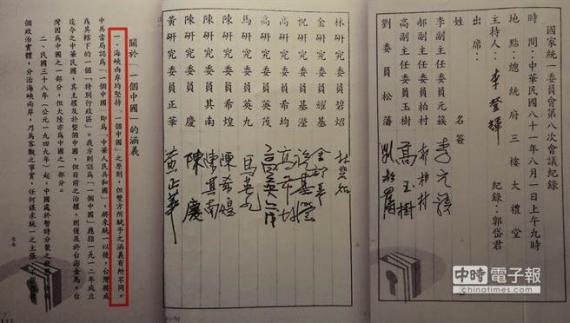 國家統一委員會第八次會議紀錄
時間：中華民國八十一年八月一日上午九時
地點：總統府三樓大禮堂
主持人：李登輝 紀錄：郭岱君
出席：
姓名 簽名
李副主任委員元簇 李元簇
郝副主任委員柏村 郝柏村
高副主任委員玉樹 高玉樹
劉委員松藩 劉松藩
林研究委員碧炤 林碧炤
金研究委員耀基 金耀基
祝研究委員基瀅 祝基瀅
高研究委員希均 高希均
高研究委員英茂 高英茂
馬研究委員英九 馬英九
陳研究委員希煌 陳希煌
陳研究委員其南 陳其南
陳研究委員慶 陳慶
黃研究委員正華 黃正華
關於「一個中國」的涵義
一、海峽兩岸均堅持「一個中國」之原則，但雙方所賦予之涵義有所不同。
中共當局認為「一個中國」即為「中華人民共和國」，將來統一以後，台灣將成
為其轄下的一個「特別行政區」。我方則認為「一個中國」應指一九一二年成立
迄今之中華民國，其主權及於整個中國，但目前之治權，則僅及於台澎金馬。台
灣固為中國之一部分，但大陸亦為中國之一部分。
二、民國三十八年（公元一九四九年）起，中國處於暫時分裂之
個政治實體，分治海峽兩岸，乃為客觀之事實，任何謀求統一之主張
中時電子報
chinatimes.com